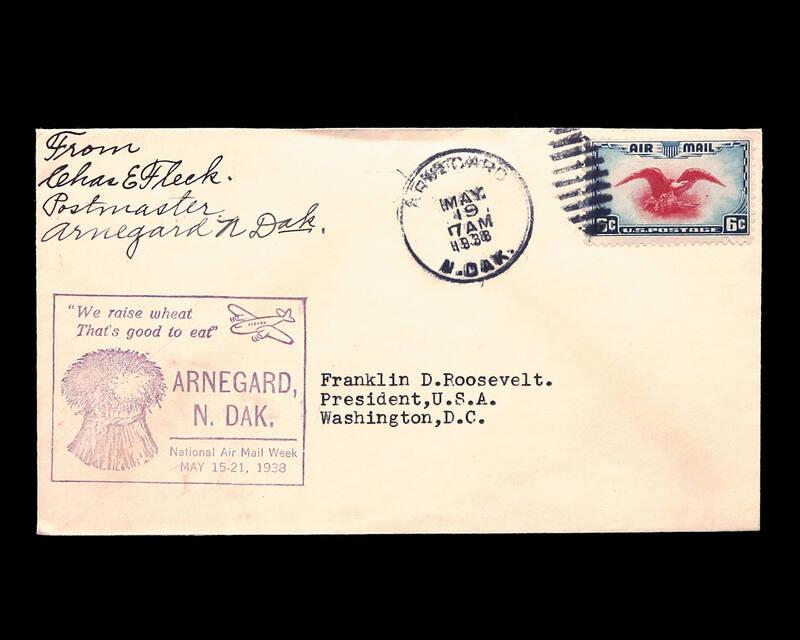 From
Chas E Fleck.
Postmaster
Arnegard N Dak.
ARNEGARD
MAY
19
7 AM
1938
N. DAK.
AIR MAIL
6c U.S. POSTAGE 6c
"We raise wheat
That's good to eat"
ARNEGARD,
N. DAK.
National Air Mail Week
MAY 15-21, 1938
Franklin D.Roosevelt.
President,U.S.A.
Washington,D.C.